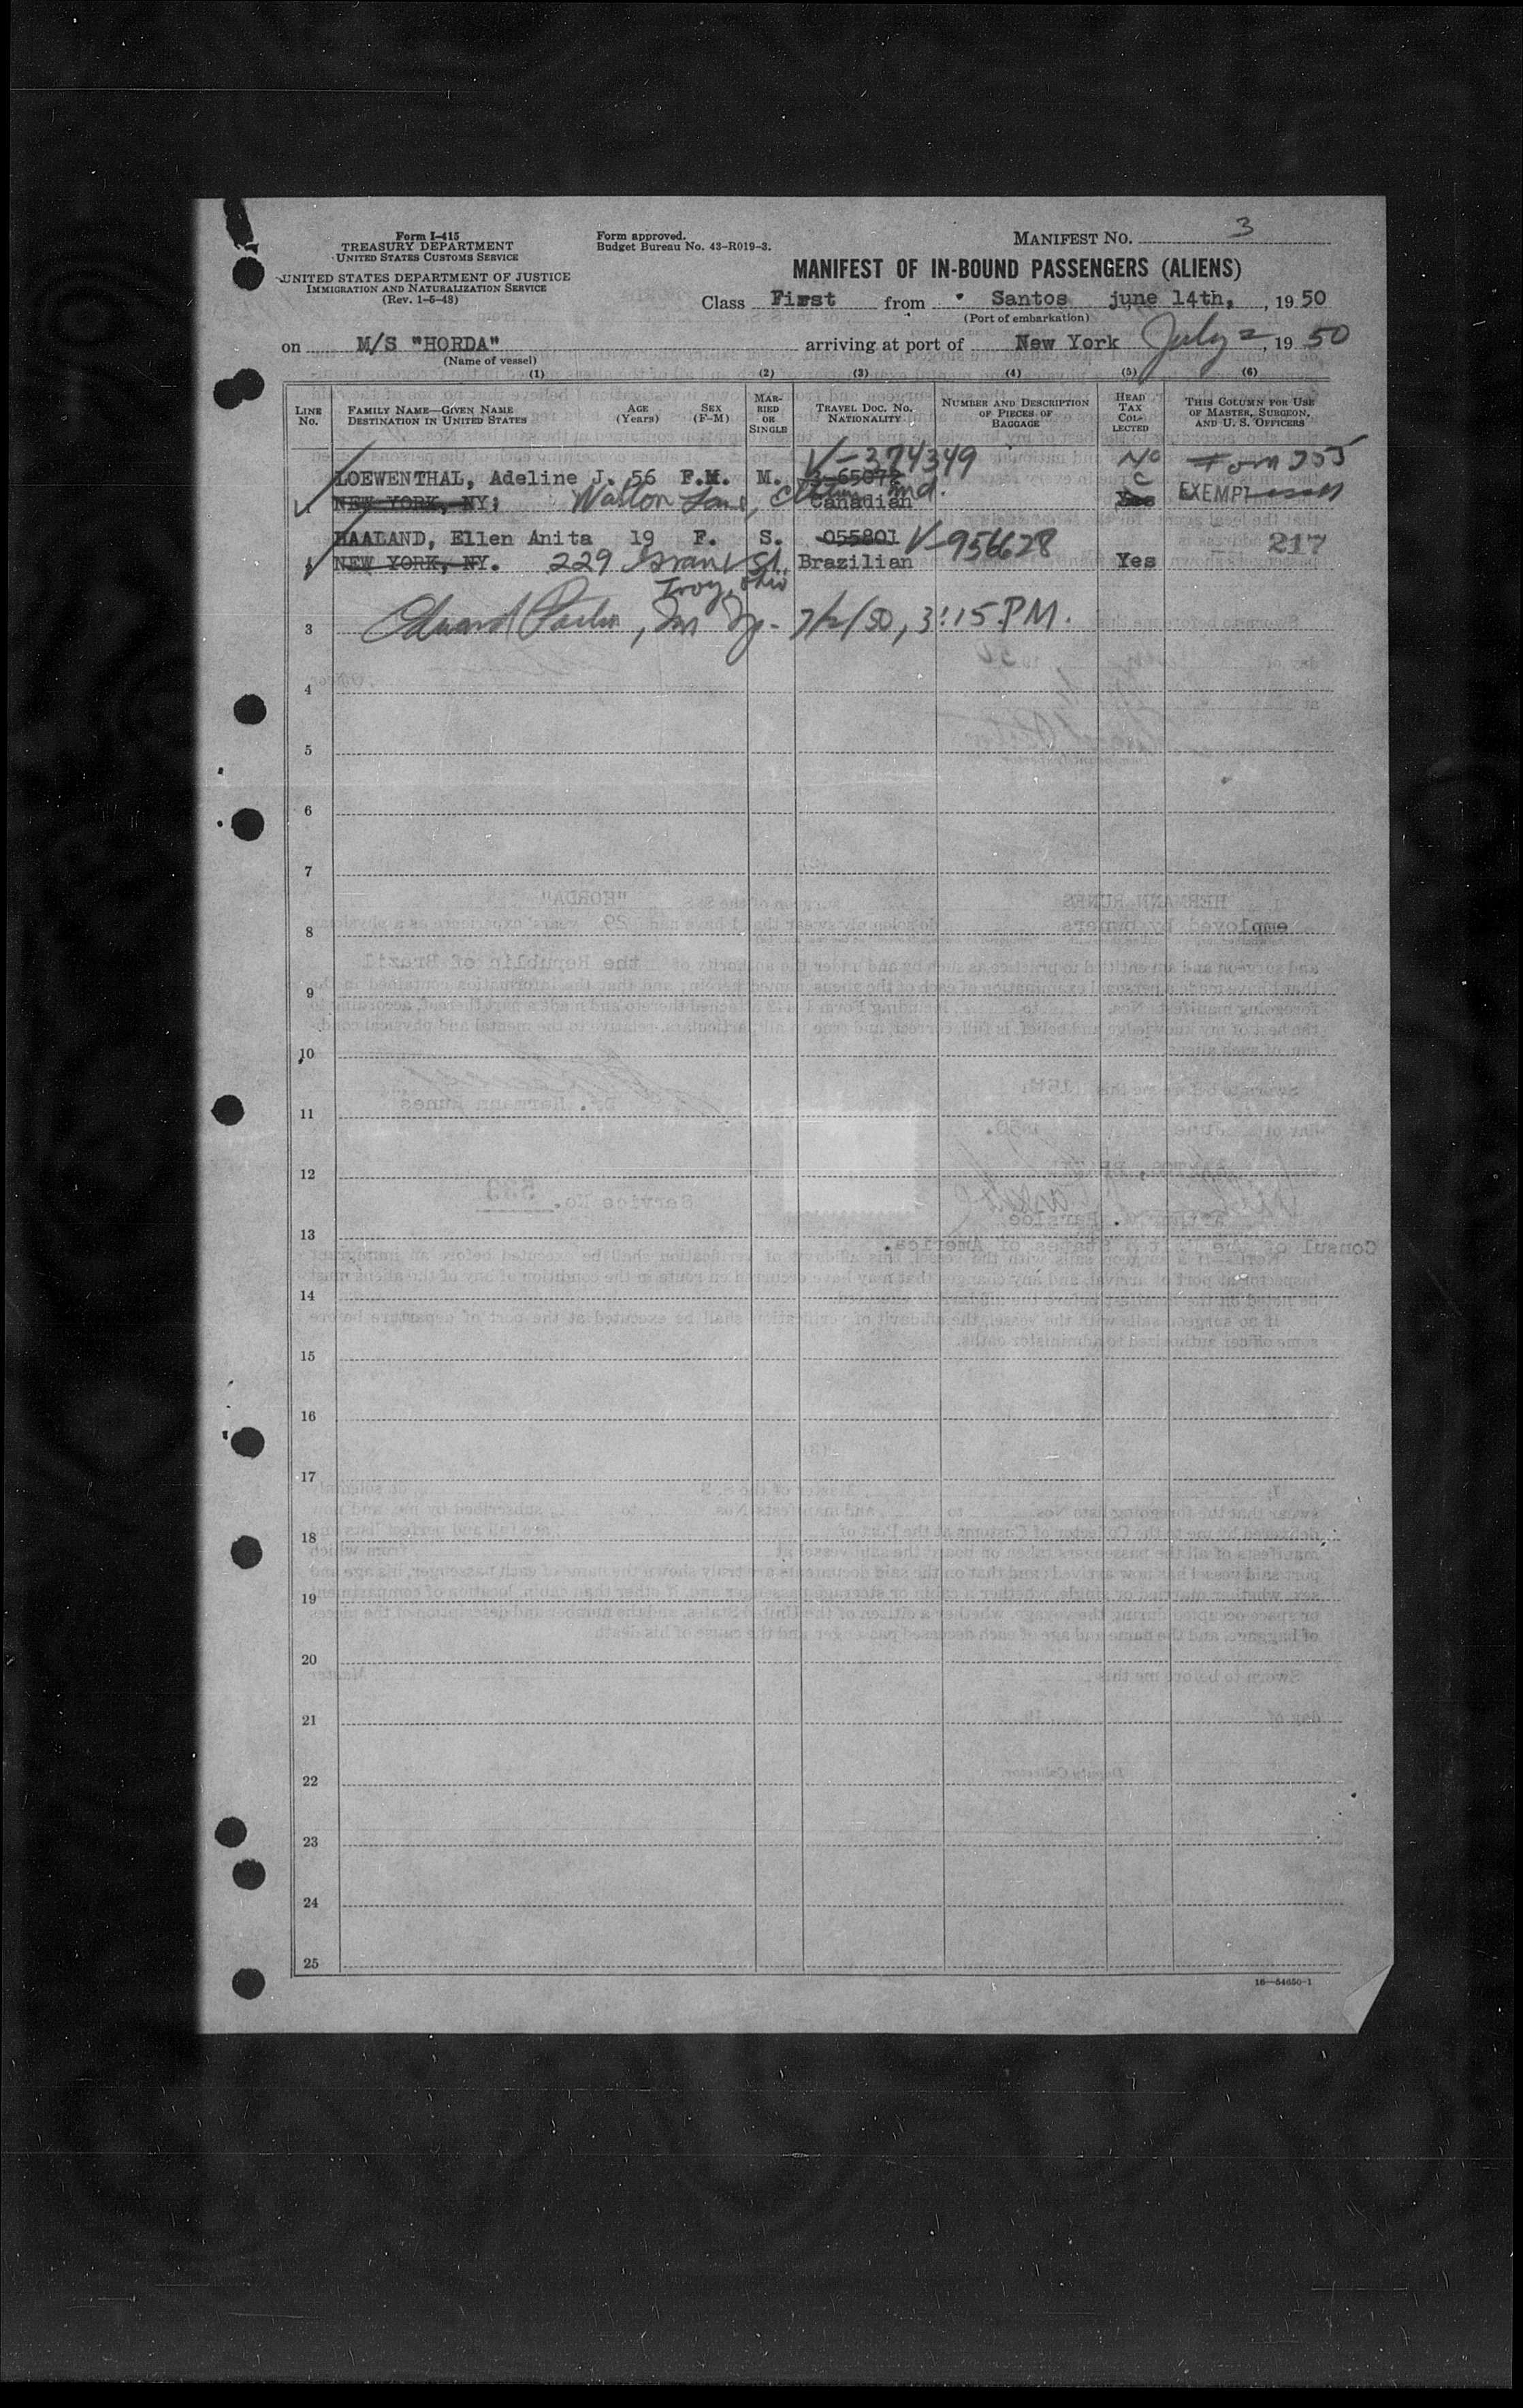 Form I-415
TREASURY DEPARTMENT
UNITED STATES CUSTOMS SERVICE
UNITED STATES DEPARTMENT OF JUSTICE
IMMIGRATION AND NATURALIZATION SERVICE
(Rev. 1-5-48)
Form approved.
Budget Bureau No. 43-R019-3.
MANIFEST NO. 3
MANIFEST OF IN-BOUND PASSENGERS (ALIENS)
Class First from Santos june 14th, , 19 50
(Port of embarkation)
on M/S "HORDA" arriving at port of New York July 2, 19 50
(Name of vessel)
(1) (2) (3) (4) (5) (6)
LINE No.
FAMILY NAME—GIVEN NAME
DESTINATION IN UNITED STATES
AGE (Years)
SEX (F-M)
MARRIED OR SINGLE
TRAVEL DOC. NO.
NATIONALITY
NUMBER AND DESCRIPTION OF PIECES OF BAGGAGE
HEAD TAX COLLECTED
THIS COLUMN FOR USE OF MASTER, SURGEON, AND U. S. OFFICERS
V-374349 No
LOEWENTHAL, Adeline J. 56 F.M. M.
NEW YORK, NY; Canadian Yes EXEMPT
HAALAND, Ellen Anita 19 F. S. 055801 V-956628 217
NEW YORK, NY. 229 Grant St. Brazilian Yes
Troy, Ohio
3 Edward 7/2/50, 3:15 P.M.
4
5
6
7
8
9
10
11
12
13
14
15
16
17
18
19
20
21
22
23
24
25
16—54650-1